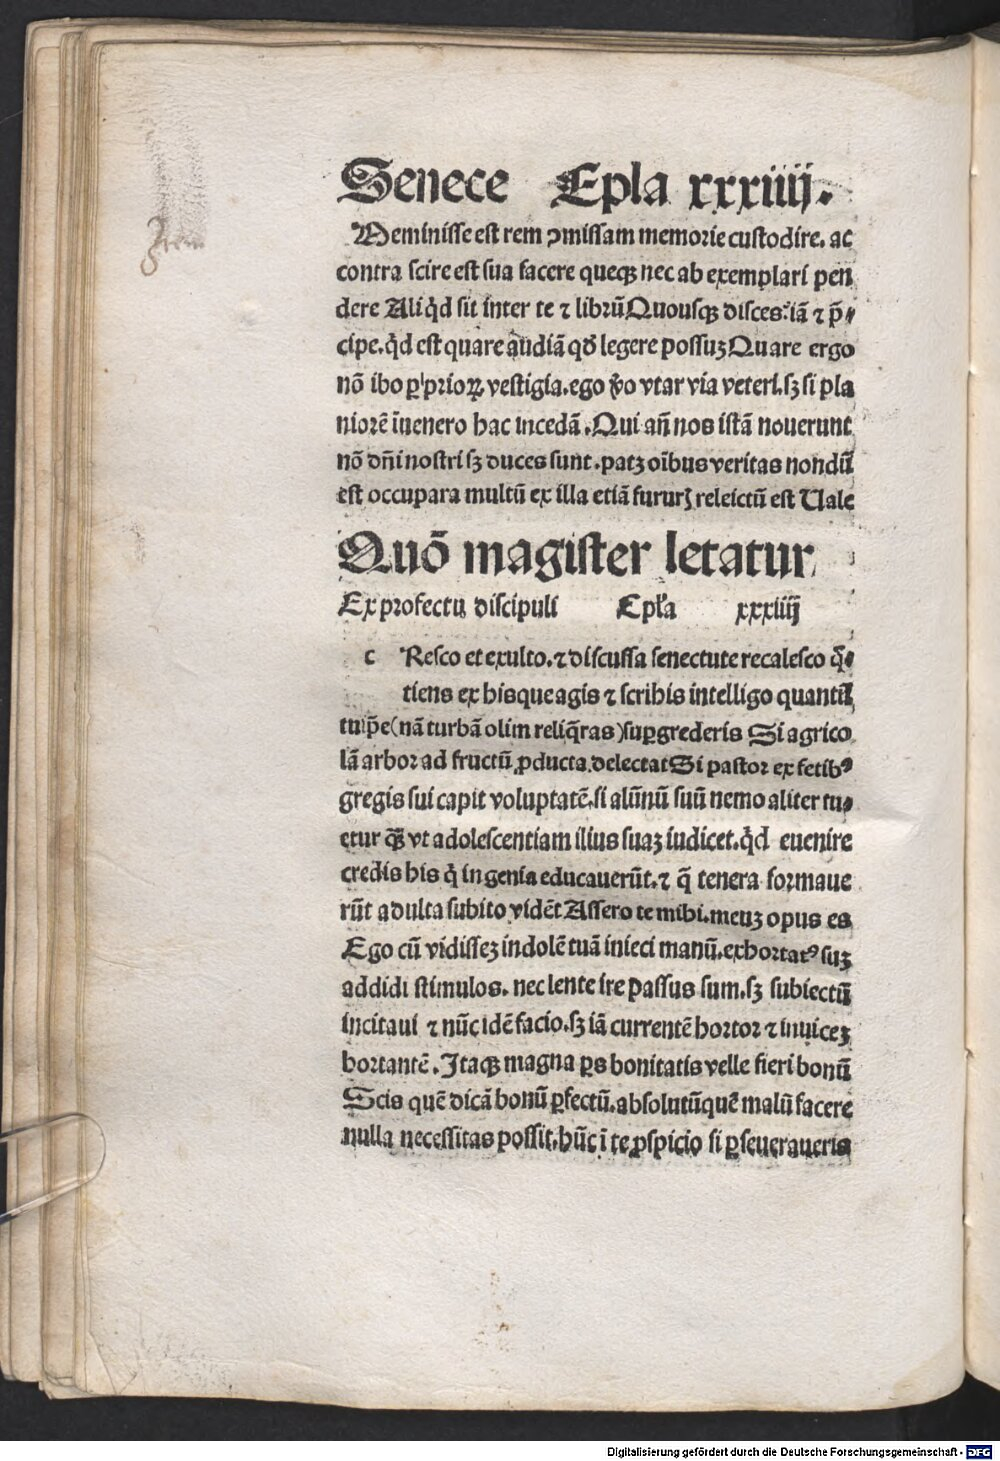 Senece Epła xxxiiij.
Meminisse est rem ↄmissam memorie custodire. ac
contra scire est sua facere queqꝫ nec ab exemplari pen
dere Aliq̇d sit inter te ⁊ librū Quousqꝫ disces. iā ⁊ p̄⸗
cipe. q̇d est quare audiā qď legere possuꝫ Quare ergo
nō ibo p̲ prioꝝ vestigia. ego v̊o vtar via veteri. sꝫ si pla
niorē īuenero hac incedā. Qui an̄ nos istā nouerunt
nō dn̄i nostri sꝫ duces sunt. patꝫ oībus veritas nondū
est occupara multū ex illa etiā fururꝭ releictū est Uale
Quō magister letatur
Ex profectu discipuli Epła xxxiiij
c Resco et exulto. ⁊ discussa senectute recalesco q̄⸗
tiens ex his que agis ⁊ scribis intelligo quantū
tu ip̄e (nā turbā olim reliq̄ras) sup̲grederis Si agrico
lā arbor ad fructū ꝓducta delectat Si pastor ex fetibꝰ
gregis sui capit voluptatē. si alūnū suū nemo aliter tu⸗
etur qꝫ̄ vt adolescentiam illius suaꝫ iudicet. q̇d euenire
credis his q̇ in genia educauerūt. ⁊ q̄ tenera formaue
rūt adulta subito vidēt Assero te mihi. meuꝫ opus es
Ego cū vidisseꝫ indolē tuā inieci manū. exhortatꝰ suꝫ
addidi stimulos. nec lente ire passus sum. sꝫ subiectū
incitaui ⁊ nūc idē facio. sꝫ iā currentē hortor ⁊ inuiceꝫ
hortantē. Itaqꝫ magna ꝑs bonitatis velle fieri bonū
Scis quē dicā bonū ꝑfectū. absolutū quē malū facere
nulla necessitas possit. hūc ī te ꝑspicio si ꝑseueraueris
Digitalisierung gefördert durch die Deutsche Forschungsgemeinschaft - DFG